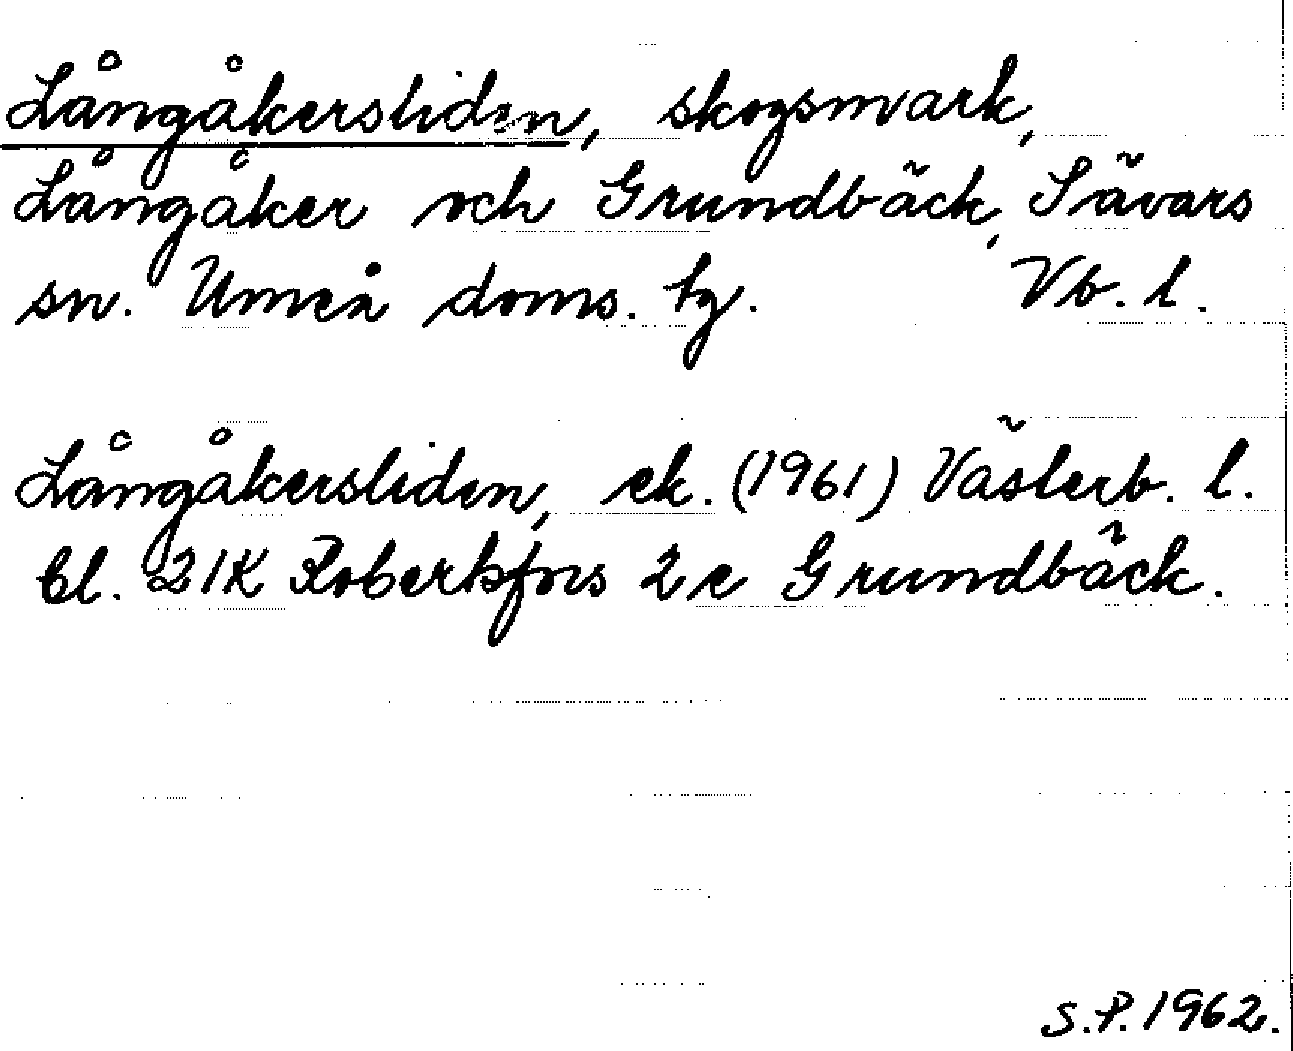 Långåkersliden, skogsmark,
Långåker och Grundbäck, Sävars
sn. Umeå doms. tg. Vb. l.
Långåkersliden, ek. (1961) Västerb. l.
bl. 21K Robertsfors 2e Grundbäck.
S.P. 1962.